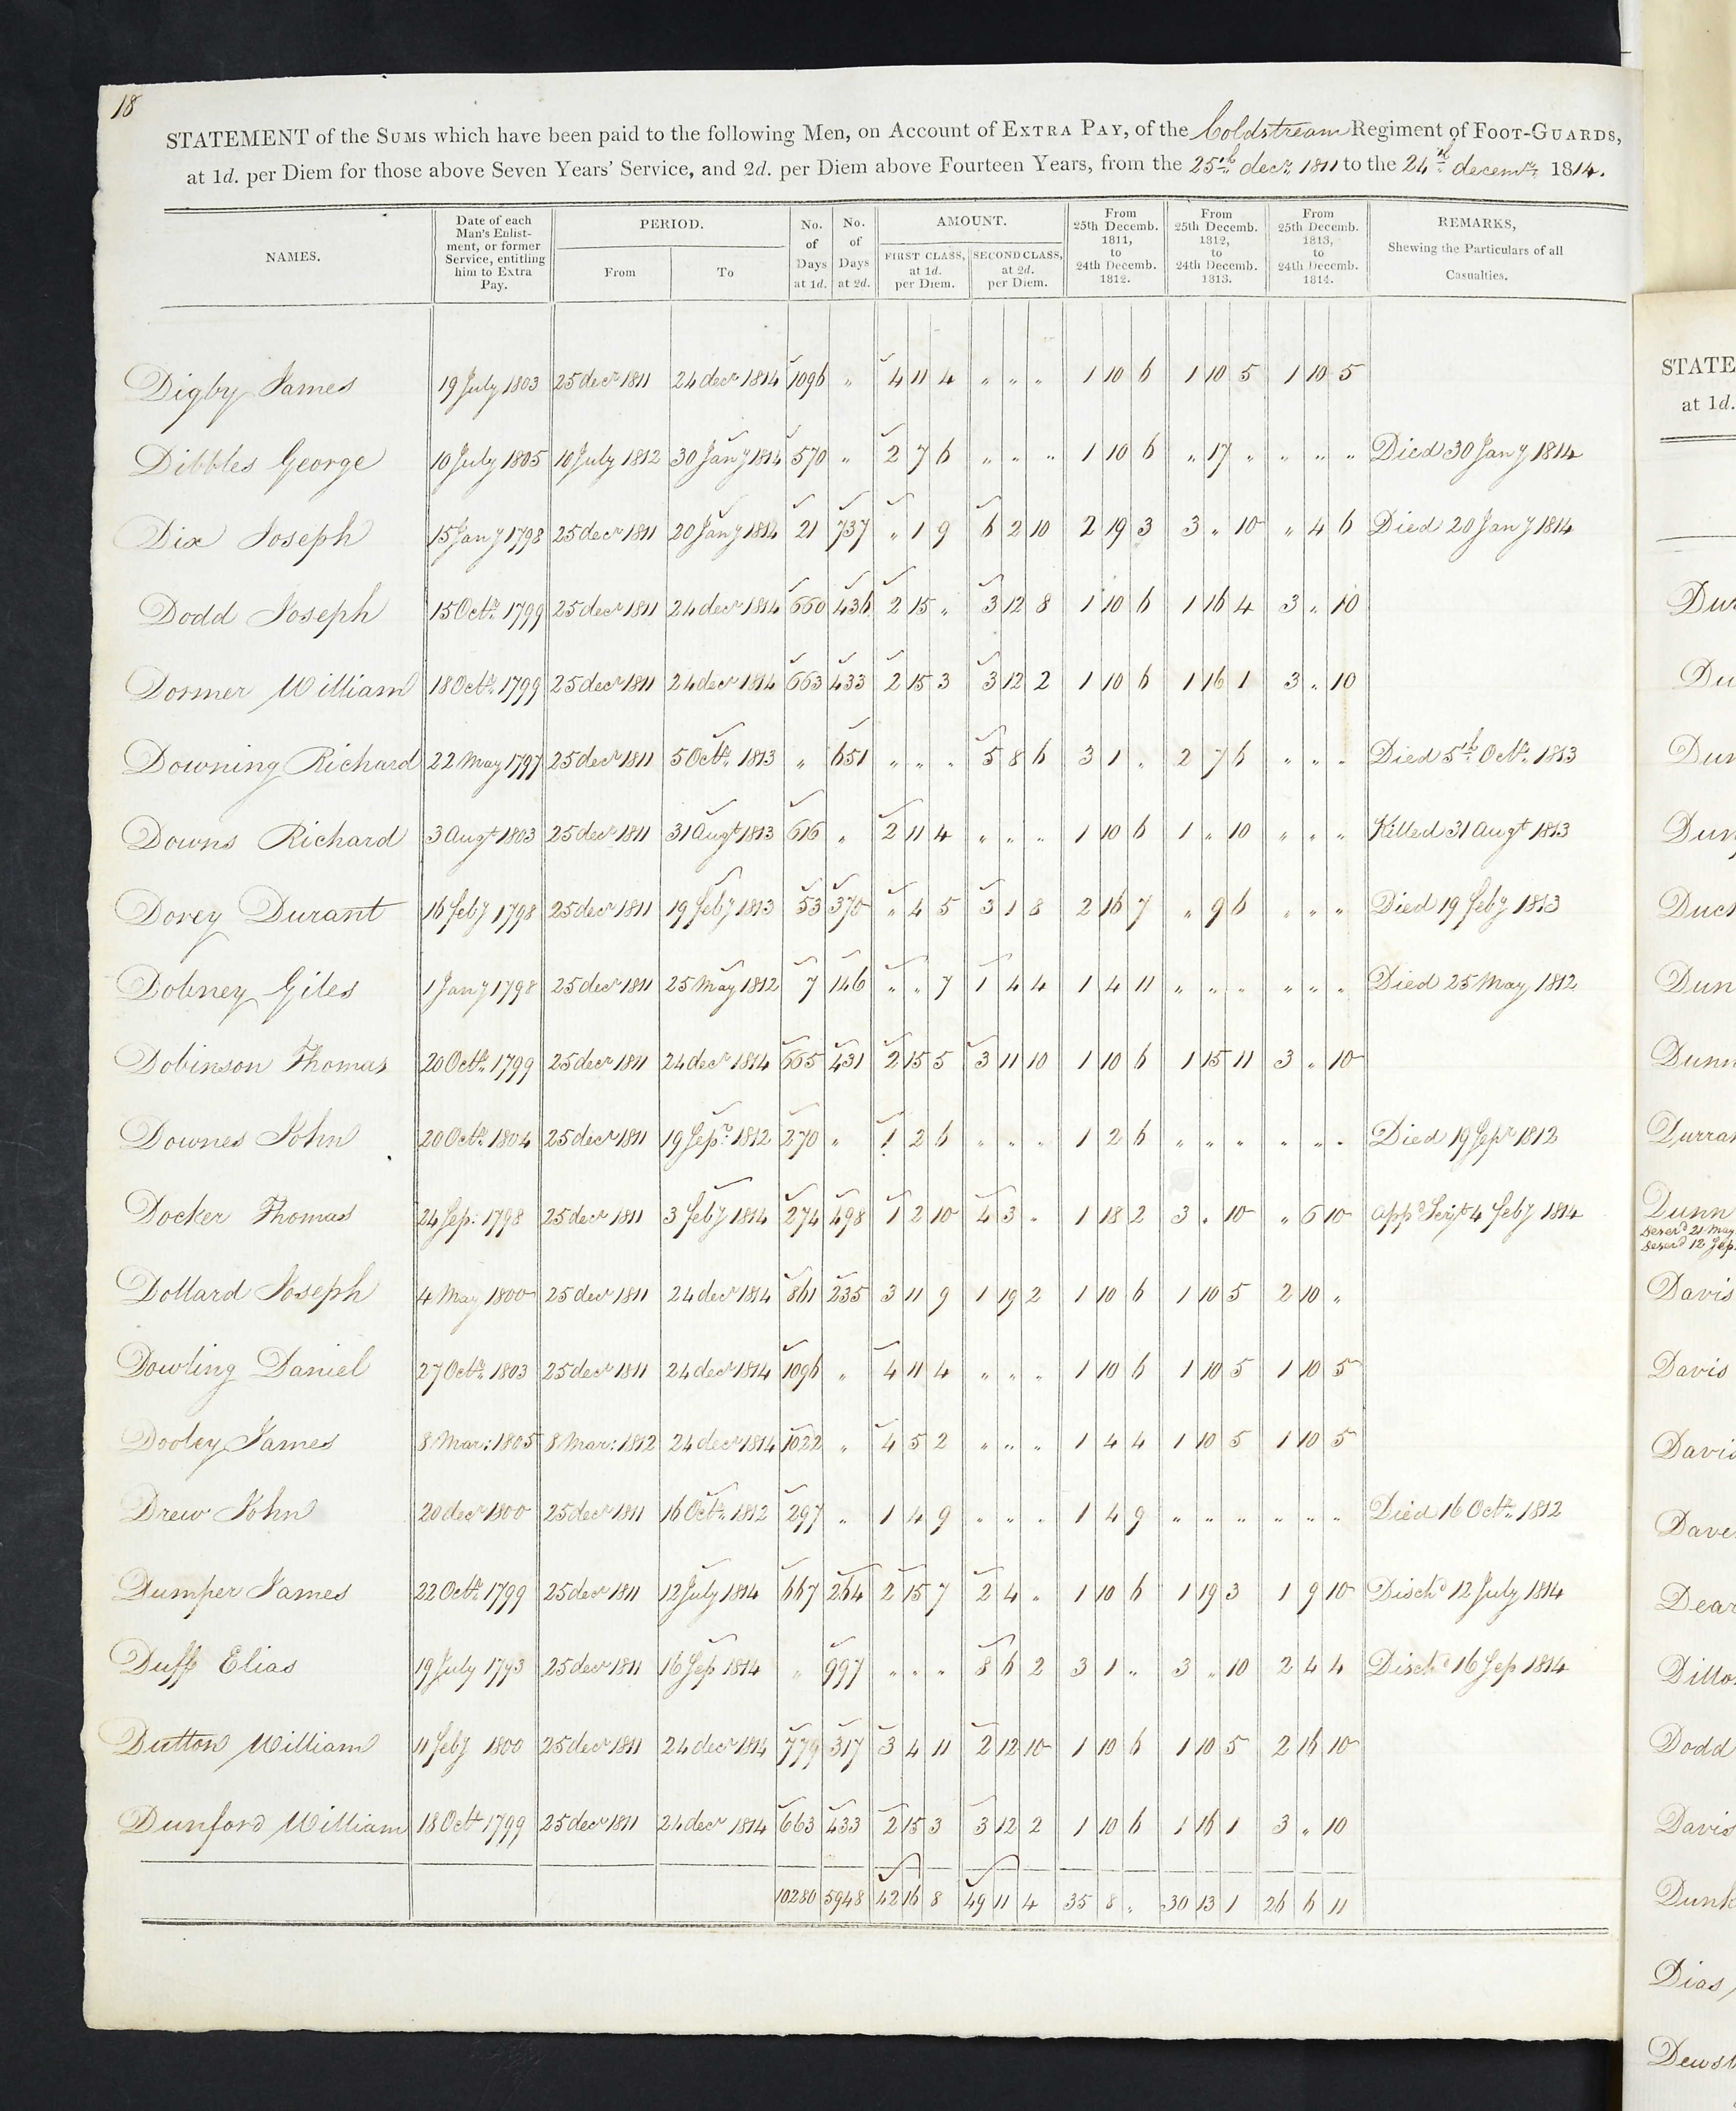 18
STATEMENT of the SUMS which have been paid to the following Men, on Account of EXTRA PAY, of the Coldstream Regiment of FOOT-GUARDS,
at 1d. per Diem for those above Seven Years' Service, and 2d. per Diem above Fourteen Years, from the 25th decr 1811 to the 24th decemr 1814.
NAMES. Date of each Man's Enlist-ment, or former Service, entitling him to Extra Pay. PERIOD. From To No. of Days at 1d. No. of Days at 2d. AMOUNT. FIRST CLASS, at 1d. per Diem. SECOND CLASS, at 2d. per Diem. From 25th Decemb. 1811, to 24th Decemb. 1812. From 25th Decemb. 1812, to 24th Decemb. 1813. From 25th Decemb. 1813, to 24th Decemb. 1814. REMARKS, Shewing the Particulars of all Casualties.
Digby James 19 July 1803 25 decr 1811 24 decr 1814 1096 " 4 11 4 " " " 1 10 6 1 10 5 1 10 5
Dibbles George 10 July 1805 10 July 1812 30 Jany 1814 570 " 2 7 6 " " " 1 10 6 " 17 " " " " Died 30 Jany 1814
Dix Joseph 15 Jany 1798 25 decr 1811 20 Jany 1814 21 737 " 1 9 6 2 10 2 19 3 3 " 10 " 4 6 Died 20 Jany 1814
Dodd Joseph 15 Octr 1799 25 decr 1811 24 decr 1814 660 436 2 15 " 3 12 8 1 10 6 1 16 4 3 " 10
Dormer William 18 Octr 1799 25 decr 1811 24 decr 1814 663 433 2 15 3 3 12 2 1 10 6 1 16 1 3 " 10
Downing Richard 22 May 1797 25 decr 1811 5 Octr 1813 " 651 " " " 5 8 6 3 1 " 2 7 6 " " " Died 5th Octr 1813
Downs Richard 3 Augt 1803 25 decr 1811 31 Augt 1813 616 " 2 11 4 " " " 1 10 6 1 " 10 " " " Killed 31 Augt 1813
Dorey Durant 16 Feby 1798 25 decr 1811 19 Feby 1813 53 370 " 4 5 3 1 8 2 16 7 " 9 6 " " " Died 19 Feby 1813
Dobney Giles 1 Jany 1798 25 decr 1811 25 May 1812 7 146 " " 7 1 4 4 1 4 11 " " " " " " Died 25 May 1812
Dobinson Thomas 20 Octr 1799 25 decr 1811 24 decr 1814 665 431 2 15 5 3 11 10 1 10 6 1 15 11 3 " 10
Downes John 20 Octr 1804 25 decr 1811 19 Sepr 1812 270 " 1 2 6 " " " 1 2 6 " " " " " " Died 19 Sepr 1812
Docker Thomas 24 Sep: 1798 25 decr 1811 3 Feby 1814 274 498 1 2 10 4 3 " 1 18 2 3 " 10 " 6 10 appd Serjt 4 Feby 1814
Dollard Joseph 4 May 1800 25 decr 1811 24 decr 1814 861 235 3 11 9 1 19 2 1 10 6 1 10 5 2 10 "
Dowling Daniel 27 Octr 1803 25 decr 1811 24 decr 1814 1096 " 4 11 4 " " " 1 10 6 1 10 5 1 10 5
Dooley James 8 Mar: 1805 8 Mar: 1812 24 decr 1814 1022 " 4 5 2 " " " 1 4 4 1 10 5 1 10 5
Drew John 20 decr 1800 25 decr 1811 16 Octr 1812 297 " 1 4 9 " " " 1 4 9 " " " " " " Died 16 Octr 1812
Dumper James 22 Octr 1799 25 decr 1811 12 July 1814 667 264 2 15 7 2 4 " 1 10 6 1 19 3 1 9 10 Dischd 12 July 1814
Duff Elias 19 July 1793 25 decr 1811 16 Sep 1814 " 997 " " " 8 6 2 3 1 " 3 " 10 2 4 4 Dischd 16 Sep 1814
Dutton William 11 Feby 1800 25 decr 1811 24 decr 1814 779 317 3 4 11 2 12 10 1 10 6 1 10 5 2 16 10
Dunford William 18 Octr 1799 25 decr 1811 24 decr 1814 663 433 2 15 3 3 12 2 1 10 6 1 16 1 3 " 10
10280 5948 42 16 8 49 11 4 35 8 " 30 13 1 26 6 11
STATE
at 1d.
Dunn
Davis
Davis
Dodd
Davis
Dias